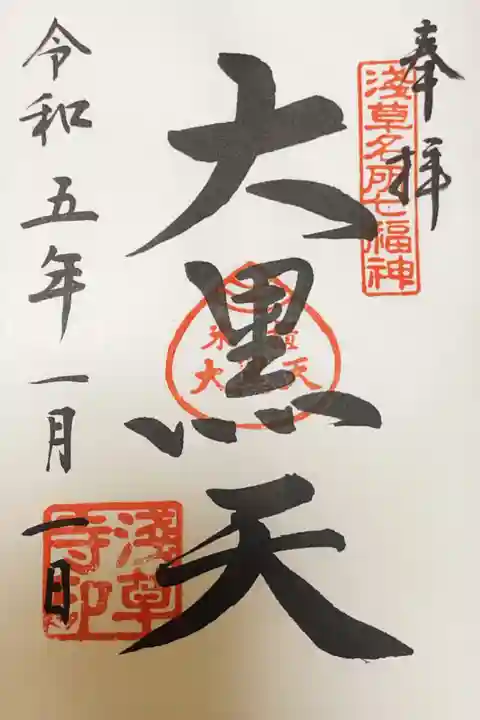 奉拝
淺草名所七福神
大黒天
大黒天
令和五年一月一日
淺草寺印